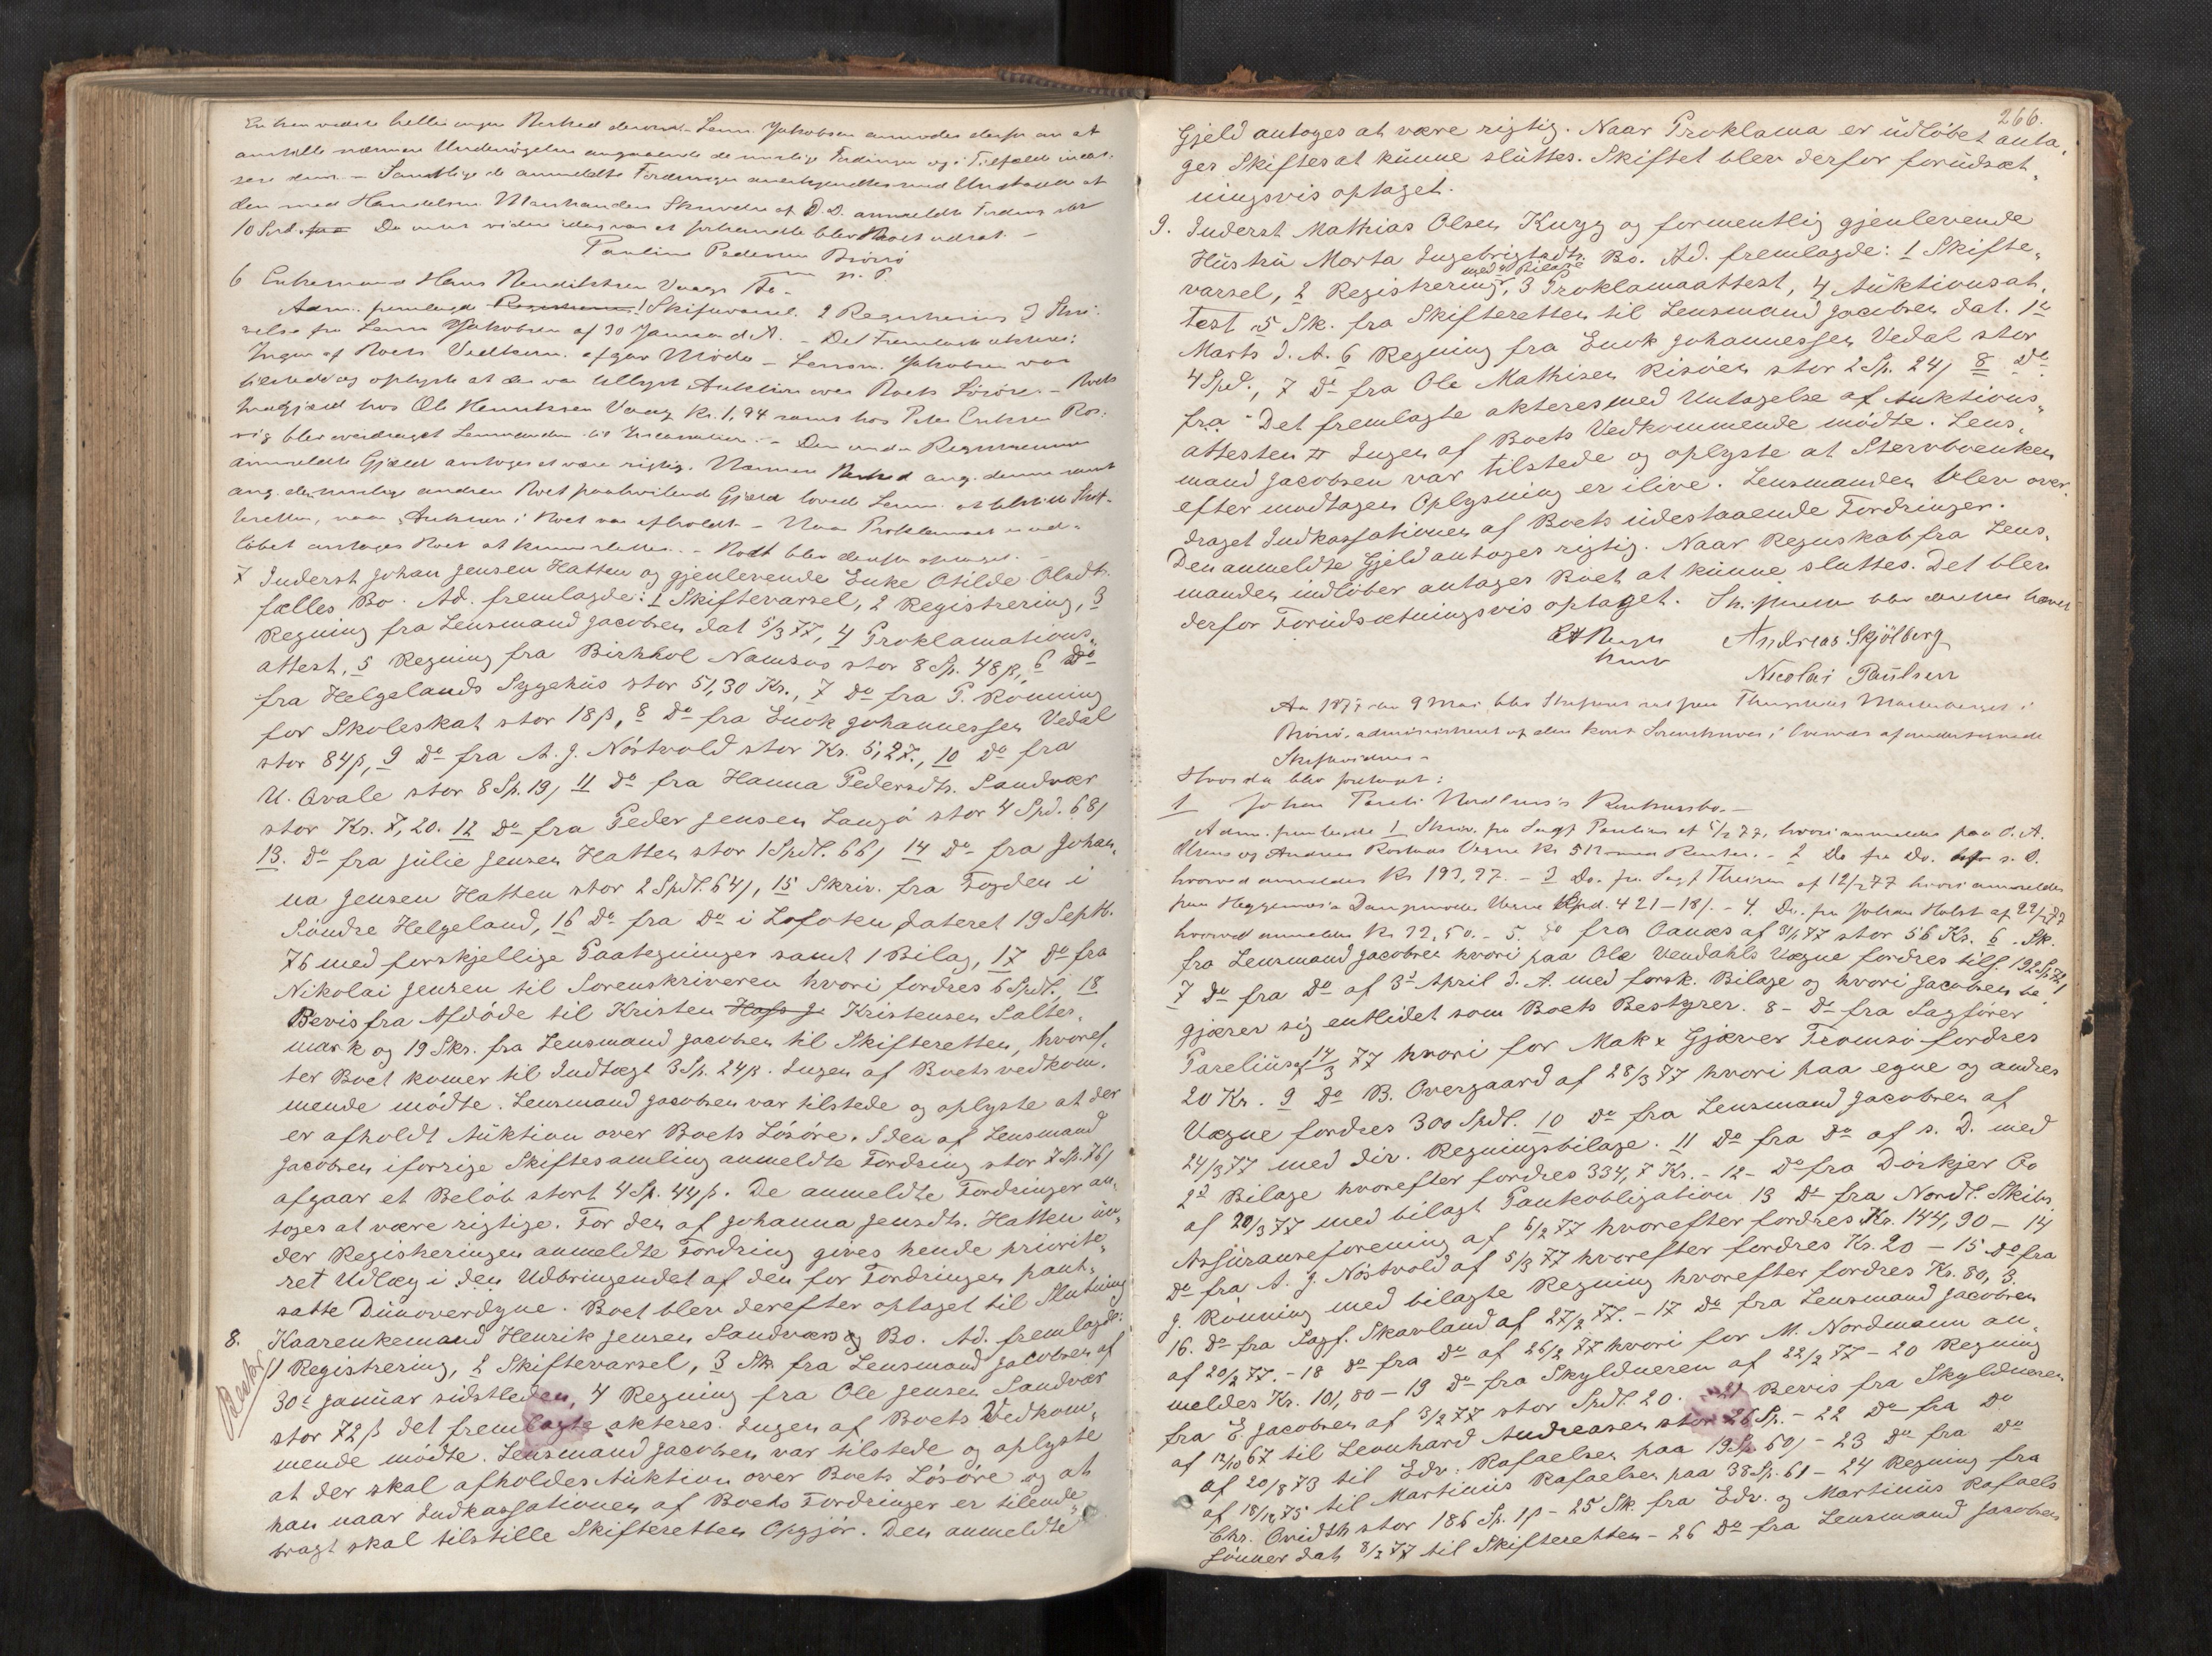 Enken vidste heller ingen Besked derom. Lensm. Jakobsen anmodes derfor om at
anstille nærmere Undersøgelser angaaende de mulige Fordringer og i Tilfælde incas-
sere dem. – Samtlige de anmeldte Fordringer anerkjendtes med Undtagelse af
den med Skrivelse af s. D. anmeldte Fordring stor
10 Spd. Da intet videre idag var at forhandle blev Boet udsat. –
Pauline Pedersen Brönö
m. p. P.
6 Enkemand Hans Bendiktsen Vaags Bo.
Adm. fremlagde 1 Skiftevarsel. 2 Registrering 3 Skri-
velse fra Lensm Jakobsen af 30 Januar d. A. – Det Fremlagte akteres.
Ingen af Boets Vedkom. afgav Møde – Lensm. Jakobsen var
tilstede og oplyste at der var tillyst Auktion over Boets Løsøre. – Boets
hos Ole Henriksen Vaag Kr. 1,94 samt hos Peter Eriksen
blev overdraget Lensmanden til Incassation. – Den under Registreringen
anmeldte Gjæld antoges at være rigtig. Nærmere Besked ang. denne samt
ang. den mulige anden Boet paahvilende Gjæld lovede Lensm. at tilstille Skif-
teretten, naar Auktion i Boet var afholdt. – Naar Proklamaet er ud-
løbet antages Boet at kunne sluttes. – Boet blev derefter optaget. –
7 Inderst Johan Jensen Hatten og gjenlevende Enke Otilde Olsdt.
fælles Bo. Ad. fremlagde: 1 Skiftevarsel, 2 Registrering, 3
Regning fra Lensmand Jacobsen dat 5/3 77, 4 Proklamations-
attest, 5 Regning fra Birkhol Namsos stor 8 Sp. 48 β, 6 Do
fra Helgelands Sygehus stor 51,30 Kr., 7 Do fra P. Rönning
for Skoleskat stor 18 β, 8 Do fra Enok Johannessen Vedal
stor 84 β, 9 Do fra A. J. Nöstvold stor Kr. 5,27., 10 Do fra
U. Qvale stor 8 Sp. 19/ 11 Do fra Hanna Pedersdtr. Sandvær
stor Kr. 7,20. 12 Do fra Peder Jensen Langö stor 4 Spd. 68/
13. Do fra Julie Jensen Hatten stor 1 Spdl. 66/ 14 Do fra Johan-
na Jensen Hatten stor 2 Spdl. 64/, 15 Skriv. fra Fogden i
Söndre Helgeland, 16 Do fra Do i Lofoten dateret 19 Septb.
76 med forskjellige Paategninger samt 1 Bilag, 17 Do fra
Nikolai Jensen til Sorenskriveren hvori fordres 6 Spdl., 18
Bevis fra Afdöde til Kristen Hofs J. Kristensen Salter-
mark og 19 Skr. fra Lensmand Jacobsen til Skifteretten, hvoref-
ter Boet komer til Indtægt 3 Sp. 24 β. Ingen af Boets vedkom-
mende mödte. Lensmand Jacobsen var tilstede og oplyste at der
er afholdt Auktion over Boets Lösöre. I den af Lensmand
Jacobsen i forrige Skiftesamling anmeldte Fordring stor 7 Sp. 76/
afgaar et Belöb stort 4 Sp. 44 β. De anmeldte Fordringer an-
toges at være rigtige. For den af Johanna Jensdtr. Hatten un-
der Registreringen anmeldte Fordring gives hende priorite-
ret Udlæg i den Udbringendet af den for Fordringen pant-
satte Dunoverdyne. Boet blev derefter optaget til Slutning
8. Kaarenkemand Henrik Jensen Sandværs Bo. Ad. fremlagde:
1 Registrering, 2 Skiftevarsel, 3 Sk. fra Lensmand Jacobsen af
30d Januar sidstleden, 4 Regning fra Ole Jensen Sandvær
stor 72 β det fremlagte akteres. Ingen af Boets Vedkom-
mende mödte. Lensmand Jacobsen var tilstede og oplyste
at der skal afholdes Auktion over Boets Lösöre og at
han naar Indkassationen af Boets Fordringer er tilende-
bragt skal tilstille Skifteretten Opgjör. Den anmeldte
266.
Gjeld antoges at være rigtig. Naar Proklama er udlöbet anta-
ges Skiftes at kunne sluttes. Skiftet blev derfor forudsæt-
ningsvis optaget.
9. Inderst Mathias Olsen Kugg og formentlig gjenlevende
Hustru Marta Ingebrigtsdtr. Bo. Ad. fremlagde: 1 Skifte-
varsel, 2 Registrering med 2 Bilage, 3 Proklamaattest, 4 Auktionsat-
test 5 Sk. fra Skifteretten til Lensmand Jacobsen dat. 1ste
Marts d. A. 6 Regning fra Enok Johannessen Vedal stor
4 Spd., 7 Do fra Ole Mathisen Risöen stor 2 Sp. 24/ 8 Do
fra – Det fremlagte akteres med Untagelse af Auktions-
attesten Ingen af Boets Vedkommende mödte. Lens-
mand Jacobsen var tilstede og oplyste at Stervboenken
efter modtagen Oplysning er ilive. Lensmanden blev over-
draget Indkassationen af Boets udestaaende Fordringer.
Den anmeldte Gjeld antages rigtig. Naar Regnskab fra Lens-
manden indlöber antages Boet at kunne sluttes. Det blev
derfor Forudsætningsvis optaget. Sk. blev derefter hævet
Andreas Skjölberg
Nicolai Paulsen
Aar 1877 den 9 Mai blev Skifteret sat paa i
Brönö, administreret af den konst. Sorenskriver i Overvær af undertegnede
Skiftevidner –
Hvorda blev foretaget:
1 Johan Nordhuus's Konkursbo. –
Adm. fremlagde 1 Skriv. fra Sagf Parelius af 5/2 77, hvori anmeldes paa O. A.
og Andreas Vegne Kr 512 med Renter. – 2 Do fra Do. s. D.
hvorved anmeldes Kr 193,97. – 3 Do. fra Sagf af 12/2 77 hvori anmeldes
paa Vegne Spd. 421 – 18/. – 4. Do. fra Johan Holst af 22/2 77
hvorved anmeldes Kr 32,50. – 5. Do fra af 31/1 77 stor 56 Kr. 6. Sk.
fra Lensmand Jacobsen hvori paa Ole Vendahls Vegne fordres tils. 192 Sp. 72/
7 Do fra Do af 3d April d. A. med forsk. Bilage og hvori Jacobsen be-
gjærer sig entledet som Boets Bestyrer. 8 – Do fra Sagförer
Parelius af 14/3 77 hvori for Mak x Gjæver Tromsö fordres
20 Kr. 9 Do B. Overgaard af 28/3 77 hvori paa egne og andres
Vegne fordres 300 Spdl. 10 Do fra Lensmand Jacobsen af
24/3 77 med div. Regningsbilage. 11 Do fra Do af s. D. med
2d Bilage hvorefter fordres 334,7 Kr. – 12 – Do fra Dörkjer Co
af 20/3 77 med bilagt Pantobligation 13 Do fra Nordl. Skibs
Assuranseforening af 6/2 77 hvorefter fordres Kr. 144,90 – 14
Do fra A. J. Nöstvold af 5/3 77 hvorefter fordres Kr. 20 – 15 Do fra
J. Rönning med bilagte Regning hvorefter fordres Kr. 80,3.
16. Do fra Sagf. Skavland af 27/2 77. – 17 Do fra Lensmand Jacobsen
af 20/2 77. – 18 Do fra Do af 26/2 77 hvori for M. Nordmann an-
meldes Kr. 101,80 – 19 Do fra Skyldneren af 22/2 77 – 20 Regning
fra E. Jacobsen af 3/2 77 stor Spdl. 20. – 21 Bevis fra Skyldneren
af 12/10 67 til Leonhard Andreasen stor 26 Sp. – 22 Do fra Do
af 20/8 73 til Edv. Rafaelsen paa 19 Sp. 60/ – 23 Do fra Do
af 18/12 75 til Martinus Rafaelsen paa 38 Sp. 61 – 24 Regning fra
Chr. Qvidth stor 186 Sp. 1 β – 25 Sk. fra Edv. og Martinus Rafaels
sönner dat 8/2 77 til Skifteretten – 26 Do fra Lensmand Jacobsen